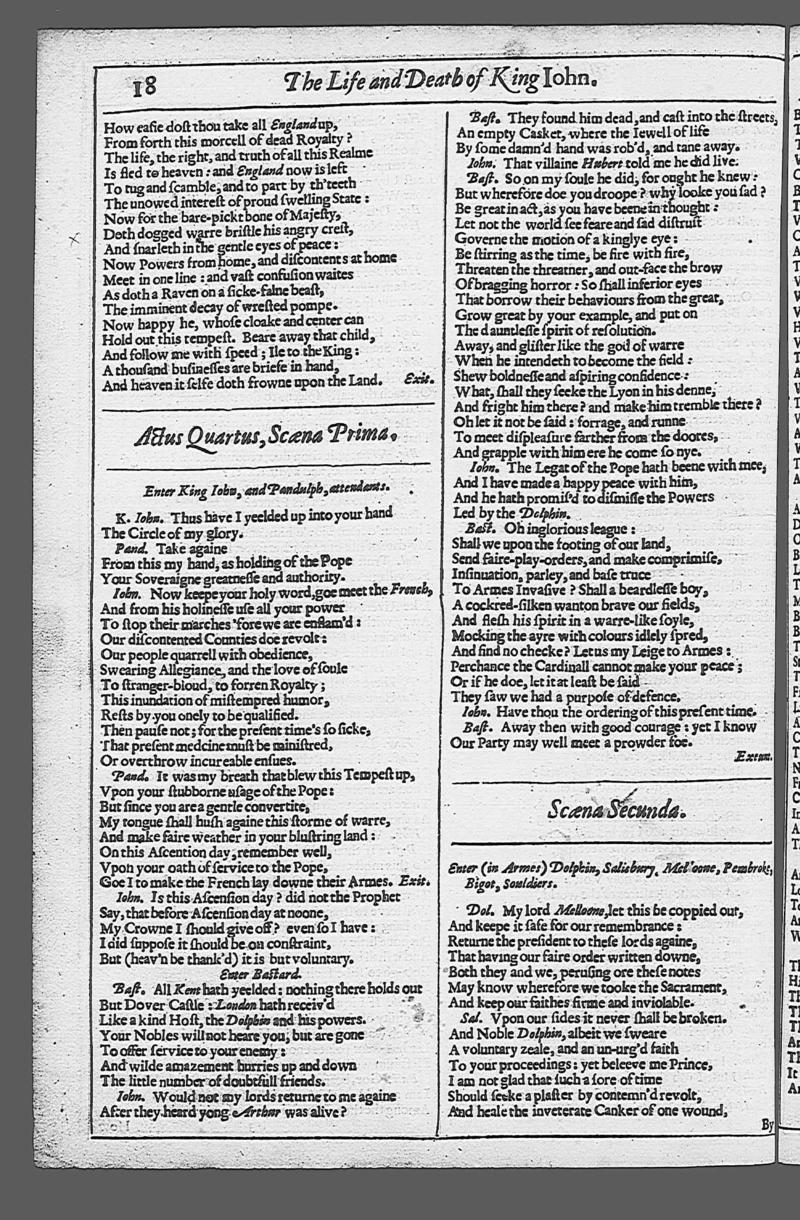 18
The Life and Death of King Iohn.
How easie dost thou take all England up,
From forth this morcell of dead Royalty?
The life, the right, and truth of all this Realme
Is fled to heaven: and England now is left
To tug and scamble, and to part by th'teeth
The unowed interest of proud swelling State:
Now for the bare-pickt bone of Majesty,
Doth dogged warre bristle his angry crest,
And snarleth in the gentle eyes of peace:
Now Powers from home, and discontents at home
Meet in one line: and vast confusion waites
As doth a Raven on a sicke-falne beast,
The imminent decay of wrested pompe.
Now happy he, whose cloake and center can
Hold out this tempest. Beare away that child,
And follow me with speed; Ile to the King:
A thousand businesses are briefe in hand,
And heaven it selfe doth frowne upon the Land. Exit.
Actus Quartus, Scæna Prima.
Enter King Iohn, and Pandulph, attendants.
K. Iohn. Thus have I yeelded up into your hand
The Circle of my glory.
Pand. Take againe
From this my hand, as holding of the Pope
Your Soveraigne greatnesse and authority.
Iohn. Now keepe your holy word, goe meet the French,
And from his holinesse use all your power
To stop their marches 'fore we are enflam'd:
Our discontented Counties doe revolt:
Our people quarrell with obedience,
Swearing Allegiance, and the love of soule
To stranger-bloud, to forren Royalty;
This inundation of mistempred humor,
Rests by you onely to be qualified.
Then pause not; for the present time's so sicke,
That present medcine must be ministred,
Or overthrow incureable ensues.
Pand. It was my breath that blew this Tempest up,
Vpon your stubborne usage of the Pope:
But since you are a gentle convertite,
My tongue shall hush againe this storme of warre,
And make faire weather in your blustring land:
On this Ascention day, remember well,
Vpon your oath of service to the Pope,
Goe I to make the French lay downe their Armes. Exit.
Iohn. Is this Ascension day? did not the Prophet
Say, that before Ascension day at noone,
My Crowne I should give off? even so I have:
I did suppose it should be on constraint,
But (heav'n be thank'd) it is but voluntary.
Enter Bastard.
Bast. All Kent hath yeelded: nothing there holds out
But Dover Castle: London hath receiv'd
Like a kind Host, the Dolphin and his powers.
Your Nobles will not heare you, but are gone
To offer service to your enemy:
And wilde amazement hurries up and down
The little number of doubtfull friends.
Iohn. Would not my lords returne to me againe
After they heard yong Arthur was alive?
Bast. They found him dead, and cast into the streets,
An empty Casket, where the Iewell of life
By some damn'd hand was rob'd, and tane away.
Iohn. That villaine Hubert told me he did live.
Bast. So on my soule he did, for ought he knew:
But wherefore doe you droope? why looke you sad?
Be great in act, as you have beene in thought:
Let not the world see feare and sad distrust
Governe the motion of a kinglye eye:
Be stirring as the time, be fire with fire,
Threaten the threatner, and out-face the brow
Of bragging horror: So shall inferior eyes
That borrow their behaviours from the great,
Grow great by your example, and put on
The dauntlesse spirit of resolution.
Away, and glister like the god of warre
When he intendeth to become the field:
Shew boldnesse and aspiring confidence:
What, shall they seeke the Lyon in his denne,
And fright him there? and make him tremble there?
Oh let it not be said: forrage, and runne
To meet displeasure farther from the doores,
And grapple with him ere he come so nye.
Iohn. The Legat of the Pope hath beene with mee,
And I have made a happy peace with him,
And he hath promis'd to dismisse the Powers
Led by the Dolphin.
Bast. Oh inglorious league:
Shall we upon the footing of our land,
Send faire-play-orders, and make comprimise,
Insinuation, parley, and base truce
To Armes Invasive? Shall a beardlesse boy,
A cockred-silken wanton brave our fields,
And flesh his spirit in a warre-like soyle,
Mocking the ayre with colours idlely spred,
And find no checke? Let us my Leige to Armes:
Perchance the Cardinall cannot make your peace;
Or if he doe, let it at least be said
They saw we had a purpose of defence.
Iohn. Have thou the ordering of this present time.
Bast. Away then with good courage: yet I know
Our Party may well meet a prowder foe.
Exeunt.
Scæna Secunda.
Enter (in Armes) Dolphin, Salisbury, Melloone, Pembroke,
Bigot, Souldiers.
Dol. My lord Melloone, let this be coppied out,
And keepe it safe for our remembrance:
Returne the president to these lords againe,
That having our faire order written downe,
Both they and we, perusing ore these notes
May know wherefore we tooke the Sacrament,
And keep our faithes firme and inviolable.
Sal. Vpon our sides it never shall be broken.
And Noble Dolphin, albeit we sweare
A voluntary zeale, and an un-urg'd faith
To your proceedings: yet beleeve me Prince,
I am not glad that such a sore of time
Should seeke a plaster by contemn'd revolt,
And heale the inveterate Canker of one wound,
By